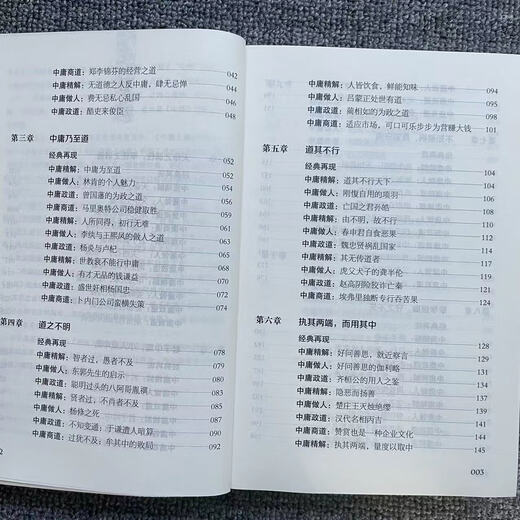 中庸商道：郑李锦芬的经营之道 042
中庸精解：无道德之人反中庸，肆无忌惮 045
中庸做人：费无忌私心乱国 046
中庸政道：酷吏来俊臣 048
第三章 中庸乃至道
经典再现 052
中庸精解：中庸为至道 052
中庸做人：林肯的个人魅力 055
中庸政道：曾国藩的为政之道 057
中庸商道：马里奥特公司稳健取胜 059
中庸精解：人所同得，初行无难 061
中庸做人：李纨与王熙凤的做人之道 063
中庸政道：杨炎与卢杞 066
中庸精解：世教衰不能行中庸 068
中庸做人：有才无品的钱谦益 070
中庸政道：盛世奸相杨国忠 072
中庸商道：卜内门公司蛮横失策 074
第四章 道之不明
经典再现 078
中庸精解：智者过，愚者不及 078
中庸做人：东郭先生的启示 080
中庸政道：聪明过头的八阿哥胤禩 082
中庸精解：贤者过，不肖者不及 084
中庸做人：杨修之死 087
中庸政道：不知变通：于谦遭人暗算 090
中庸商道：过犹不及：牟其中的败局 092
2
中庸精解：人皆饮食，鲜能知味 094
中庸做人：吕蒙正处世有道 096
中庸政道：蔺相如的为政之道 098
中庸商道：适应市场，可口可乐步步为营赚大钱 101
第五章 道其不行
经典再现 104
中庸精解：道其不行天下 104
中庸做人：刚愎自用的项羽 106
中庸政道：亡国之君孙皓 108
中庸精解：由不明，故不行 110
中庸做人：春申君自食恶果 112
中庸政道：魏忠贤祸乱国家 115
中庸精解：其无传道者 117
中庸做人：虎父犬子的龚半伦 119
中庸政道：赵高阴险狡诈亡秦 121
中庸商道：埃弗里独断专行吞苦果 124
第六章 执其两端，而用其中
经典再现 128
中庸精解：好问善思，就近察言 128
中庸做人：好问善思的伽利略 131
中庸政道：齐桓公的用人之鉴 133
中庸精解：隐恶而扬善 135
中庸做人：楚庄王灭烛绝缨 137
中庸政道：汉代名相丙吉 139
中庸商道：赞赏也是一种企业文化 142
中庸精解：执其两端，量度以取中 145
003